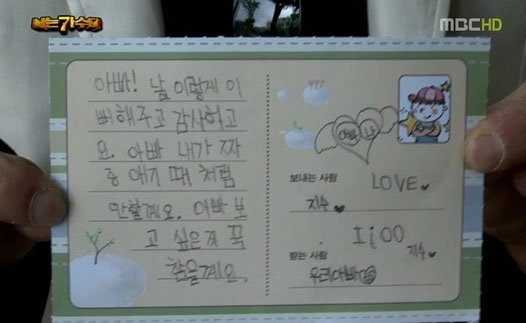 나는 가수다
MBC HD
아빠! 날 이렇게 이
뻐해주고 감사하고
요. 아빠 내가 짜
증 애기 때 처럼
안할게요. 아빠 보
고 싶은거 꼭
참을게요.
아빠 나
보내는 사람
LOVE ♥
지수 ♥
지수 ♥
받는 사람
우리아빠